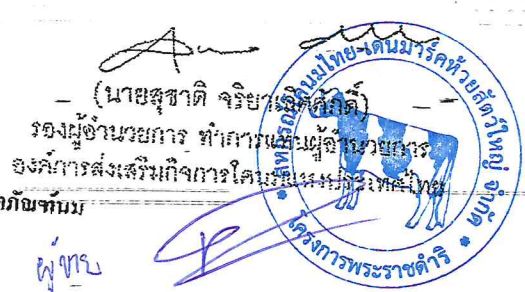 (นายสุชาติ จริยาเลิศศักดิ์)
รองผู้อำนวยการ ทำการแทนผู้อำนวยการ
องค์การส่งเสริมกิจการโคนมแห่งประเทศไทย
ภัณฑ์นม
ผู้ขาย
สหกรณ์โคนมไทย-เดนมาร์คห้วยสัตว์ใหญ่ จำกัด
โครงการพระราชดำริ